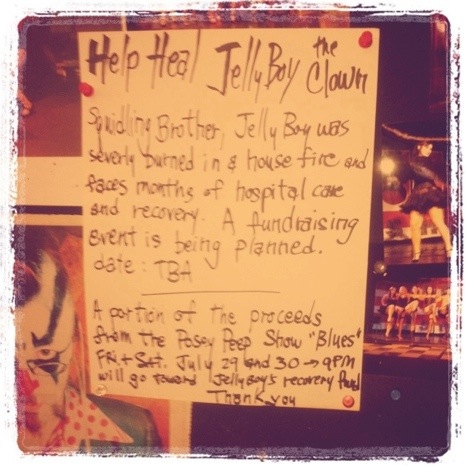 Help Heal Jelly Boy the Clown
Squidling Brother, Jelly Boy was
severly burned in a house fire and
faces months of hospital care
and recovery. A fundraising
event is being planned.
date: TBA
A portion of the proceeds
from the Posey Peep Show "Blues"
FRI. + SAT. July 29 and 30 → 9PM
will go toward Jelly Boy's recovery Fund
Thank you